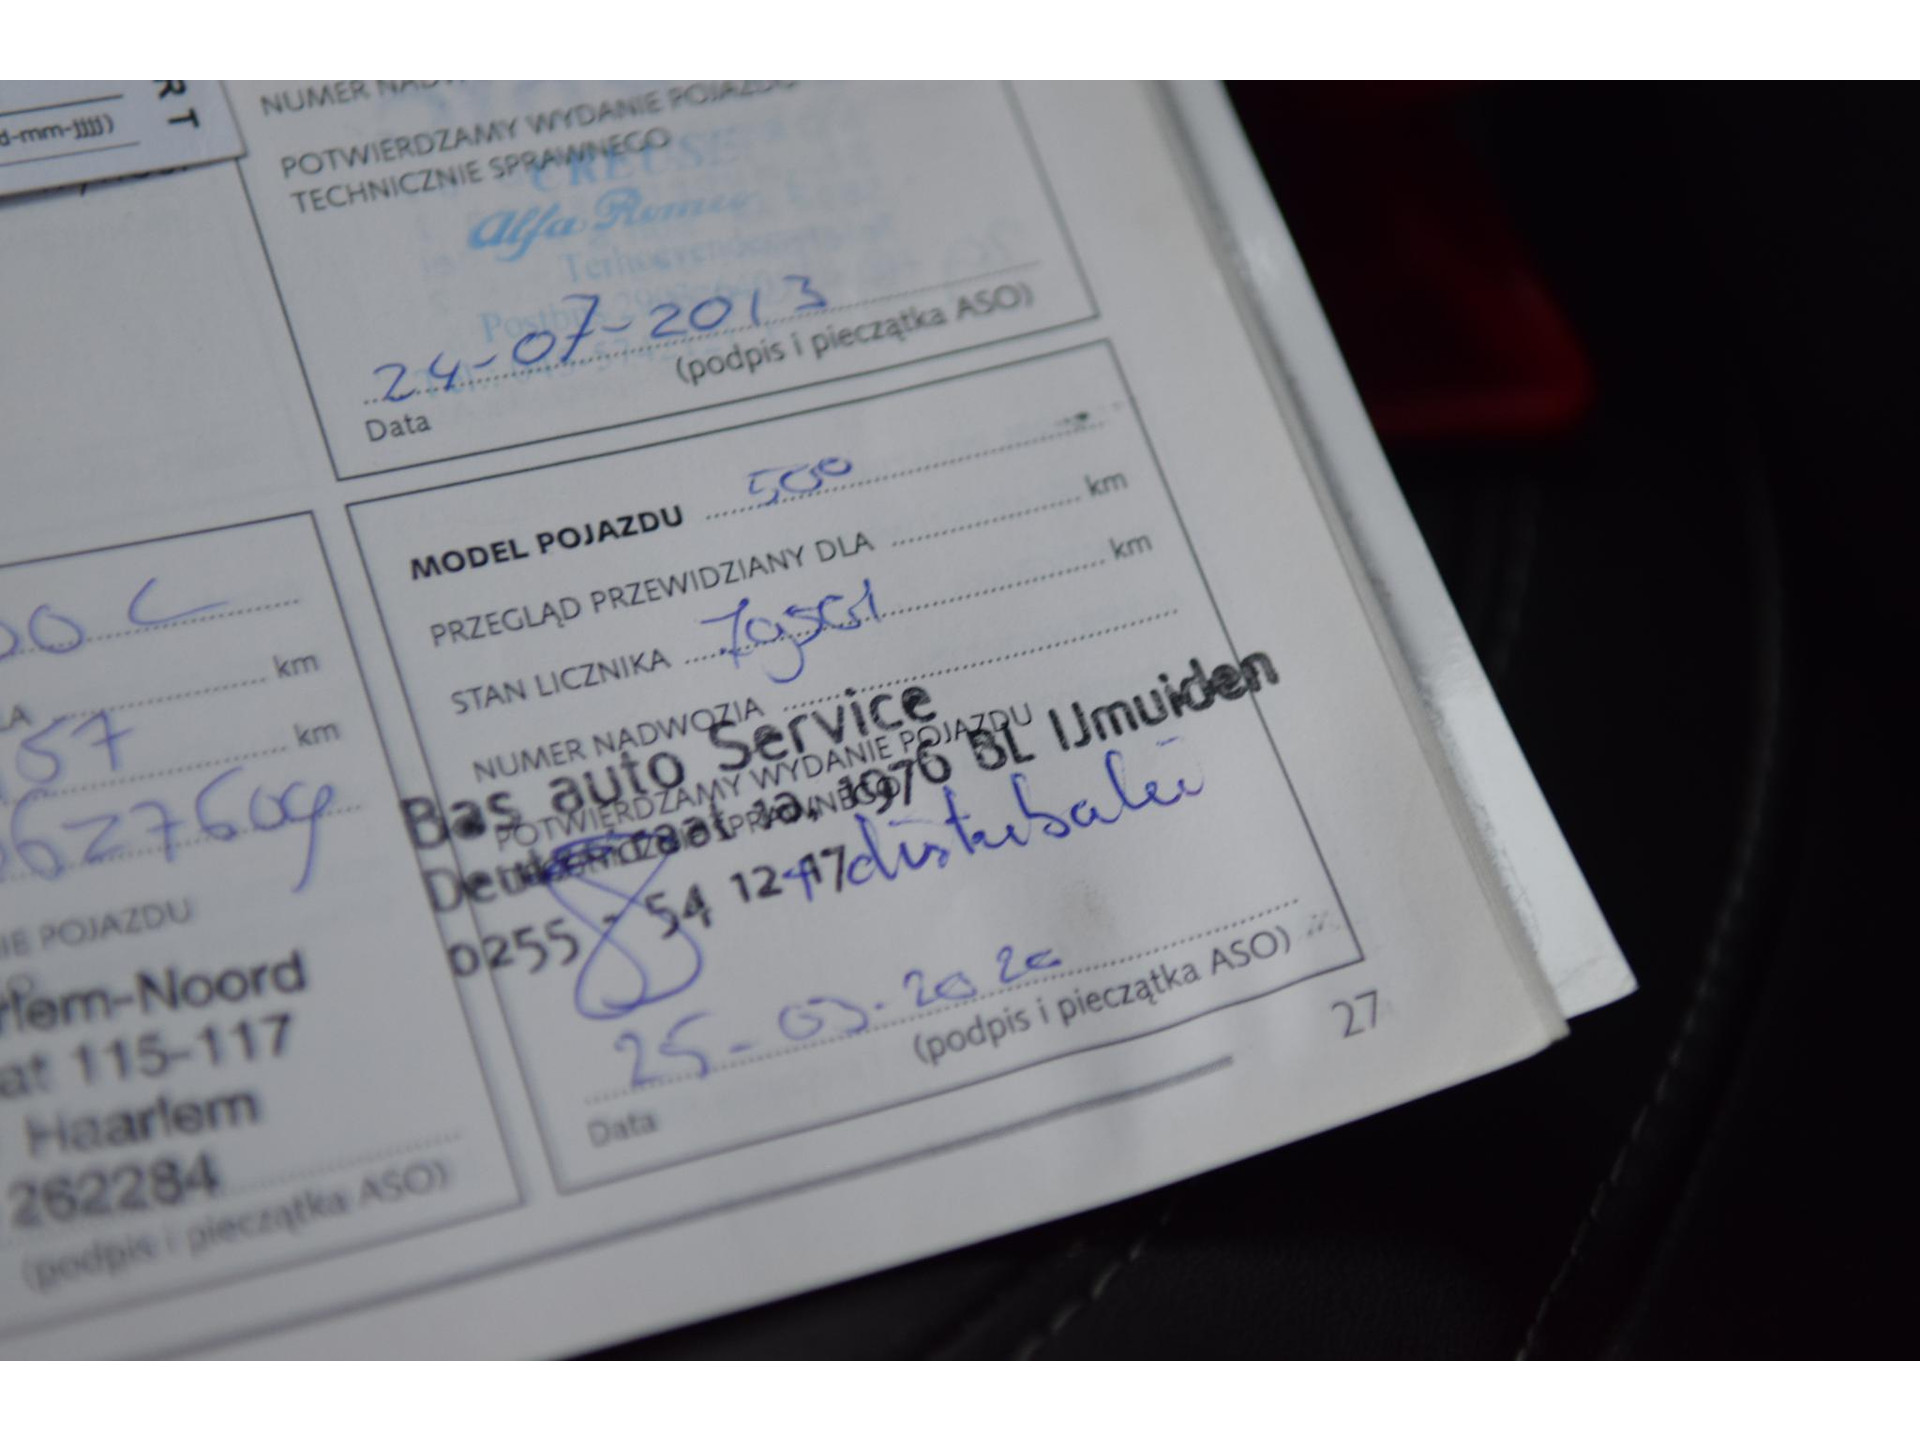 RT
d-mm-jjjj)
POTWIERDZAMY WYDANIE POJAZDU
TECHNICZNIE SPRAWNEGO
CREUSE
Alfa Romeo
24-07-2013
(podpis i pieczątka ASO)
Data
MODEL POJAZDU 500
PRZEGLĄD PRZEWIDZIANY DLA km
STAN LICZNIKA km
NUMER NADWOZIA
POTWIERDZAMY WYDANIE POJAZDU
Bas auto Service
1a, 1976 BL IJmuiden
0255 - 54 12 17
+ distributie
25-03-2020
(podpis i pieczątka ASO)
Data
27
00 C
LA km
157 km
627609
IE POJAZDU
rlem-Noord
at 115-117
Haarlem
262284
(podpis i pieczątka ASO)